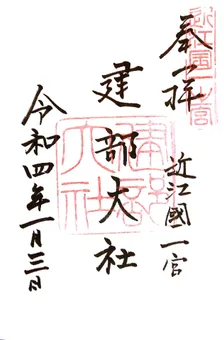 奉拝
近江國一宮
建部大社
令和四年一月三日
近江国一宮
建部大社